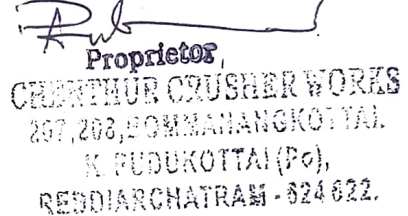 Proprietor,
CHENTHUR CRUSHER WORKS
207,208, BOMMANANGKOTTAI,
K. PUDUKOTTAI (Po),
REDDIARCHATRAM - 624 622.